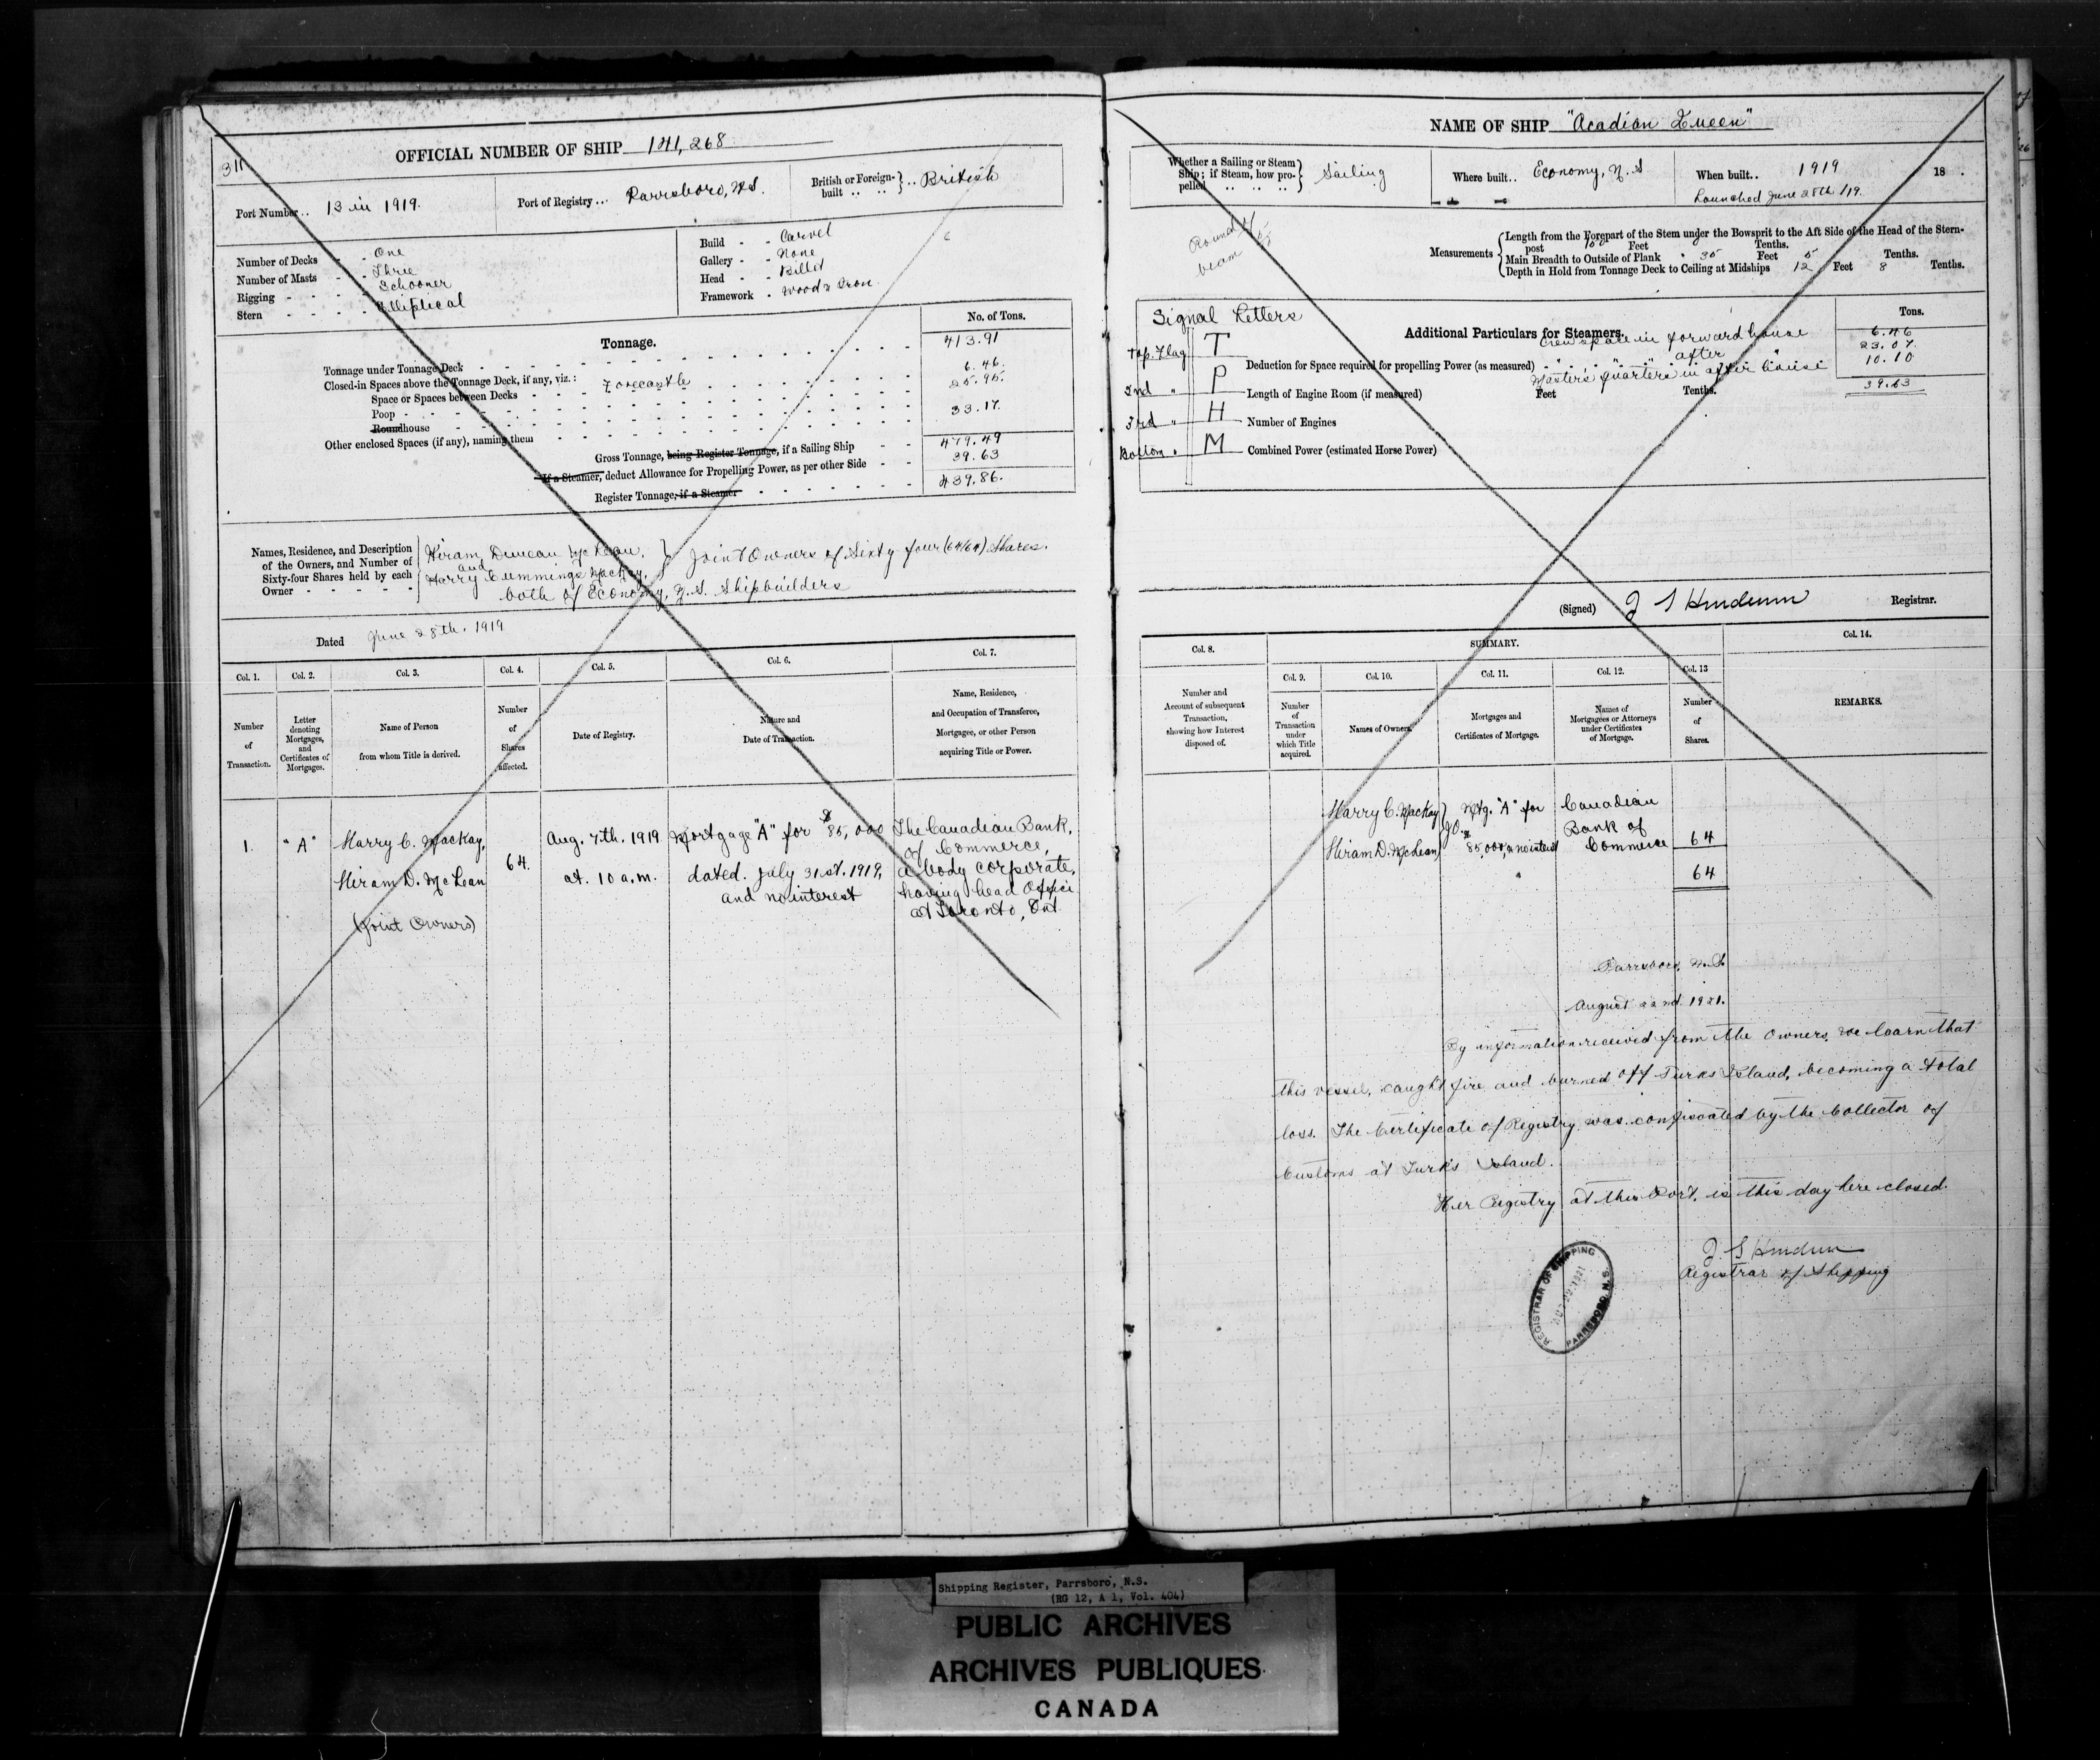 311
OFFICIAL NUMBER OF SHIP 141,268
Port Number .. 13 in 1919.
Port of Registry ... Parrsboro, N.S.
British or Foreign-built .. .. } .. British
Number of Decks - - One
Number of Masts - - Three
Rigging - - - - Schooner
Stern - - - - Elliptical
Build - - Carvel
Gallery - - None
Head - - Billet
Framework - Wood & Iron.
Tonnage.
No. of Tons.
Tonnage under Tonnage Deck 413.91
Closed-in Spaces above the Tonnage Deck, if any, viz.:
Space or Spaces between Decks Forecastle 6.46.
Poop 25.95.
Roundhouse
Other enclosed Spaces (if any), naming them 33.17.
Gross Tonnage, being Register Tonnage, if a Sailing Ship 479.49
If a Steamer, deduct Allowance for Propelling Power, as per other Side 39.63
Register Tonnage, if a Steamer 439.86.
Names, Residence, and Description
of the Owners, and Number of
Sixty-four Shares held by each
Owner - - - - -
Hiram Duncan McLean,
and
Harry Cummings MacKay,
} Joint Owners of Sixty four (64/64) Shares.
both of Economy, N.S. Shipbuilders
Dated June 28th. 1919
Col. 1. Col. 2. Col. 3. Col. 4. Col. 5. Col. 6. Col. 7.
Number
of
Transaction.
Letter
denoting
Mortgages,
and
Certificates of
Mortgages.
Name of Person
from whom Title is derived.
Number
of
Shares
affected.
Date of Registry.
Nature and
Date of Transaction.
Name, Residence,
and Occupation of Transferee,
Mortgagee, or other Person
acquiring Title or Power.
1.
"A"
Harry C. MacKay,
Hiram D. McLean
(Joint Owners)
64.
Aug. 7th. 1919
at. 10 a.m.
Mortgage "A" for $85,000
dated. July 31st. 1919,
and no interest
The Canadian Bank,
of Commerce,
a body corporate,
having head office
at Toronto, Ont.
NAME OF SHIP "Acadian Queen"
Whether a Sailing or Steam
Ship; if Steam, how pro-
pelled .. .. .. ..
} Sailing
Where built .. Economy, N.S
When built .. 1919 18 .
Launched June 28th /19.
Round of
beam
Measurements
Length from the Forepart of the Stem under the Bowsprit to the Aft Side of the Head of the Stern-
post Feet Tenths.
Main Breadth to Outside of Plank - 35 Feet 5 Tenths.
Depth in Hold from Tonnage Deck to Ceiling at Midships 12 Feet 8 Tenths.
Signal Letters
Top. Flag T
2nd " P
3rd " H
Bottom " M
Additional Particulars for Steamers.
Tons.
Crew space in forward house 6.46
" " " after " 23.07.
Masters quarters in after house 10.10
39.63
Deduction for Space required for propelling Power (as measured)
Length of Engine Room (if measured) Feet Tenths.
Number of Engines
Combined Power (estimated Horse Power)
(Signed) Registrar.
Col. 8.
SUMMARY.
Col. 14.
Col. 9. Col. 10. Col. 11. Col. 12. Col. 13
Number and
Account of subsequent
Transaction,
showing how Interest
disposed of.
Number
of
Transaction
under
which Title
acquired.
Names of Owners.
Mortgages and
Certificates of Mortgage.
Names of
Mortgagees or Attorneys
under Certificates
of Mortgage.
Number
of
Shares.
REMARKS.
Harry C. MacKay
Hiram D. McLean
} J.O.
Mtg. "A" for
$85,000, & no interest
Canadian
Bank of
Commerce
64
64
Parrsboro, N.S.
August 22nd. 1921.
By information received from the Owners, we learn that
this vessel, caught fire and burned off Turks Island, becoming a total
loss. The Certificate of Registry was confiscated by the Collector of
Customs at Turks Island.
Her Registry at this Port, is this day here closed.
Registrar of Shipping
REGISTRAR OF SHIPPING
AUG 22 1921
PARRSBORO, N.S.
Shipping Register, Parrsboro, N.S.
(RG 12, A 1, Vol. 404)
PUBLIC ARCHIVES
ARCHIVES PUBLIQUES
CANADA